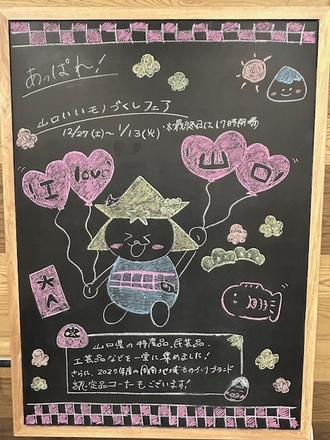 あっぱれ!
山口いいモノづくしフェア
12/27(土)〜1/13(火) ※最終日は17時閉場
I love 山口
山口県の特産品、民芸品、
工芸品などを一堂に集めました!
さらに、2025年度の周南地域ものづくりブランド
認定品コーナーもございます!